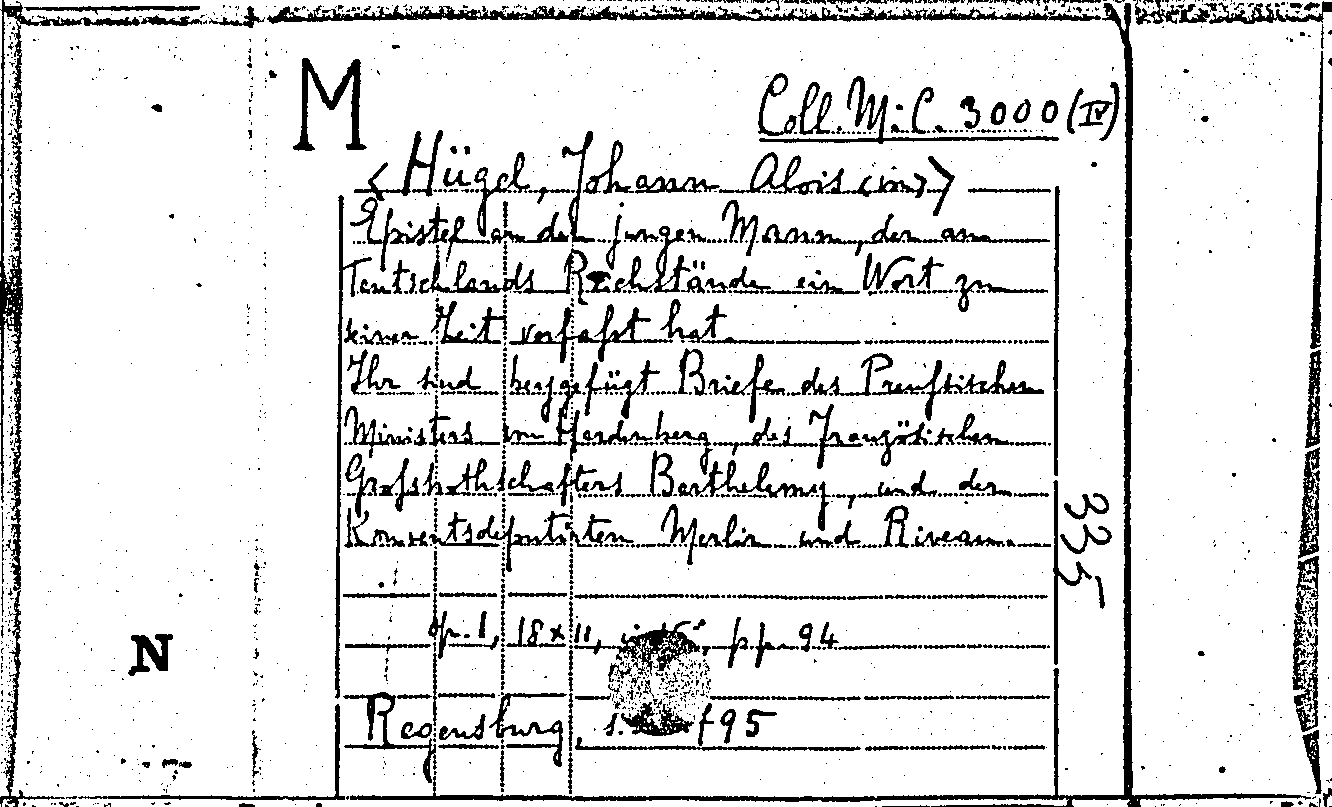 M
Coll. M.C. 3000 (IV)
<Hügel, Johann Alois (von)>
Epistel an den jungen Mann, der an
Teutschlands Reichstände ein Wort zu
seiner Zeit verfasst hat.
Ihr sind beygefügt Briefe des Preussischen
Ministers von Hardenberg, des Französischen
Grossbothschafters Barthelemy, und der
Konventsdeputirten Merlin und Riveau.
335
op. 1, 18 x 11, pp. 94
N
Regensburg, s. 95